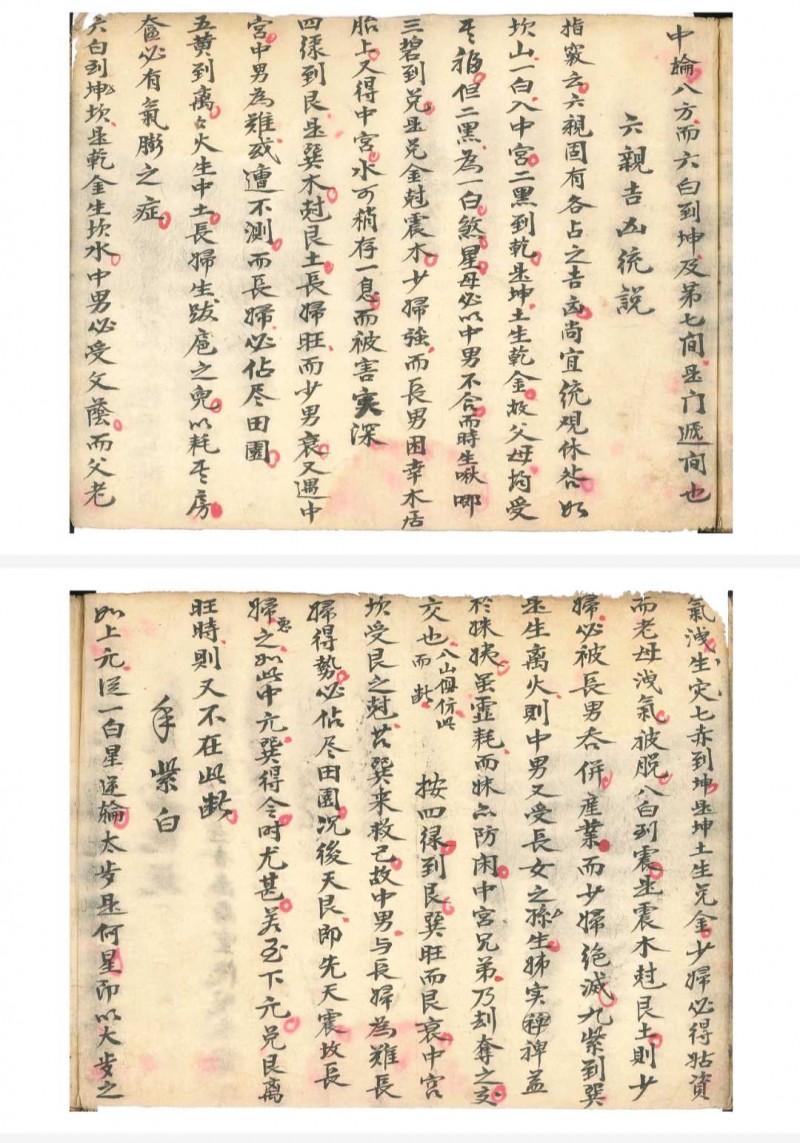 中輪八方而六白到坤及第七间是门遞间也
六親吉凶统説
指竅之六親固有各占之吉凶尚宜统观休咎如
坎山一白入中宮二黑到乾是坤土生乾金故父母均受
其福但二黑為一白煞星母必以中男不合而時生啾唧
三碧到兑是兑金尅震木少婦強而長男困幸木居
胎上又得中宮水可稍存一息而被害实深
四绿到艮是巽木尅艮土長婦旺而少男衰又遇中
宮中男為難或遭不测而長婦必佔尽田園
五黄到离々火生中土長婦生跋扈之兒以耗其房
奩必有氣膨之症
六白到坎是乾金生坎水中男必受父蔭而父老
氣洩生灾七赤到坤是坤土生兑金少婦必得姑資
而老母洩氣被脱八白到震是震木尅艮土則少
婦必被長男吞併產業而少婦绝滅九紫到巽
是生离火則中男又受長女之生姊实裨益
於妹姨虽虚耗而妹亦防闲中宮兄弟乃刦奪之交
交也八山俱仿此而断 按四绿到艮巽旺而艮衰中宮
坎受艮之尅苦巽来救己故中男与長婦為難長
婦得勢必佔尽田園况後天艮即先天震故長
婦惡之如此中元巽得令时尤甚若至下元兑艮离
旺時則又不在此断
年紫白
如上元從一白星逆輪太岁是何星即以太岁之